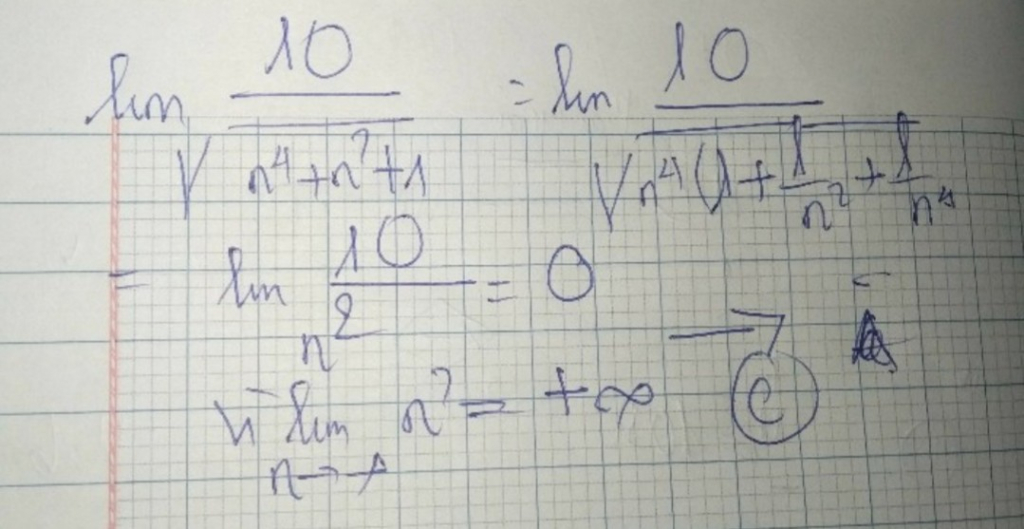 lim 10/√(n⁴+n²+1) = lim 10/√(n⁴(1+1/n²+1/n⁴
= lim 10/n² = 0
→ C
Vì lim n² = +∞
n→